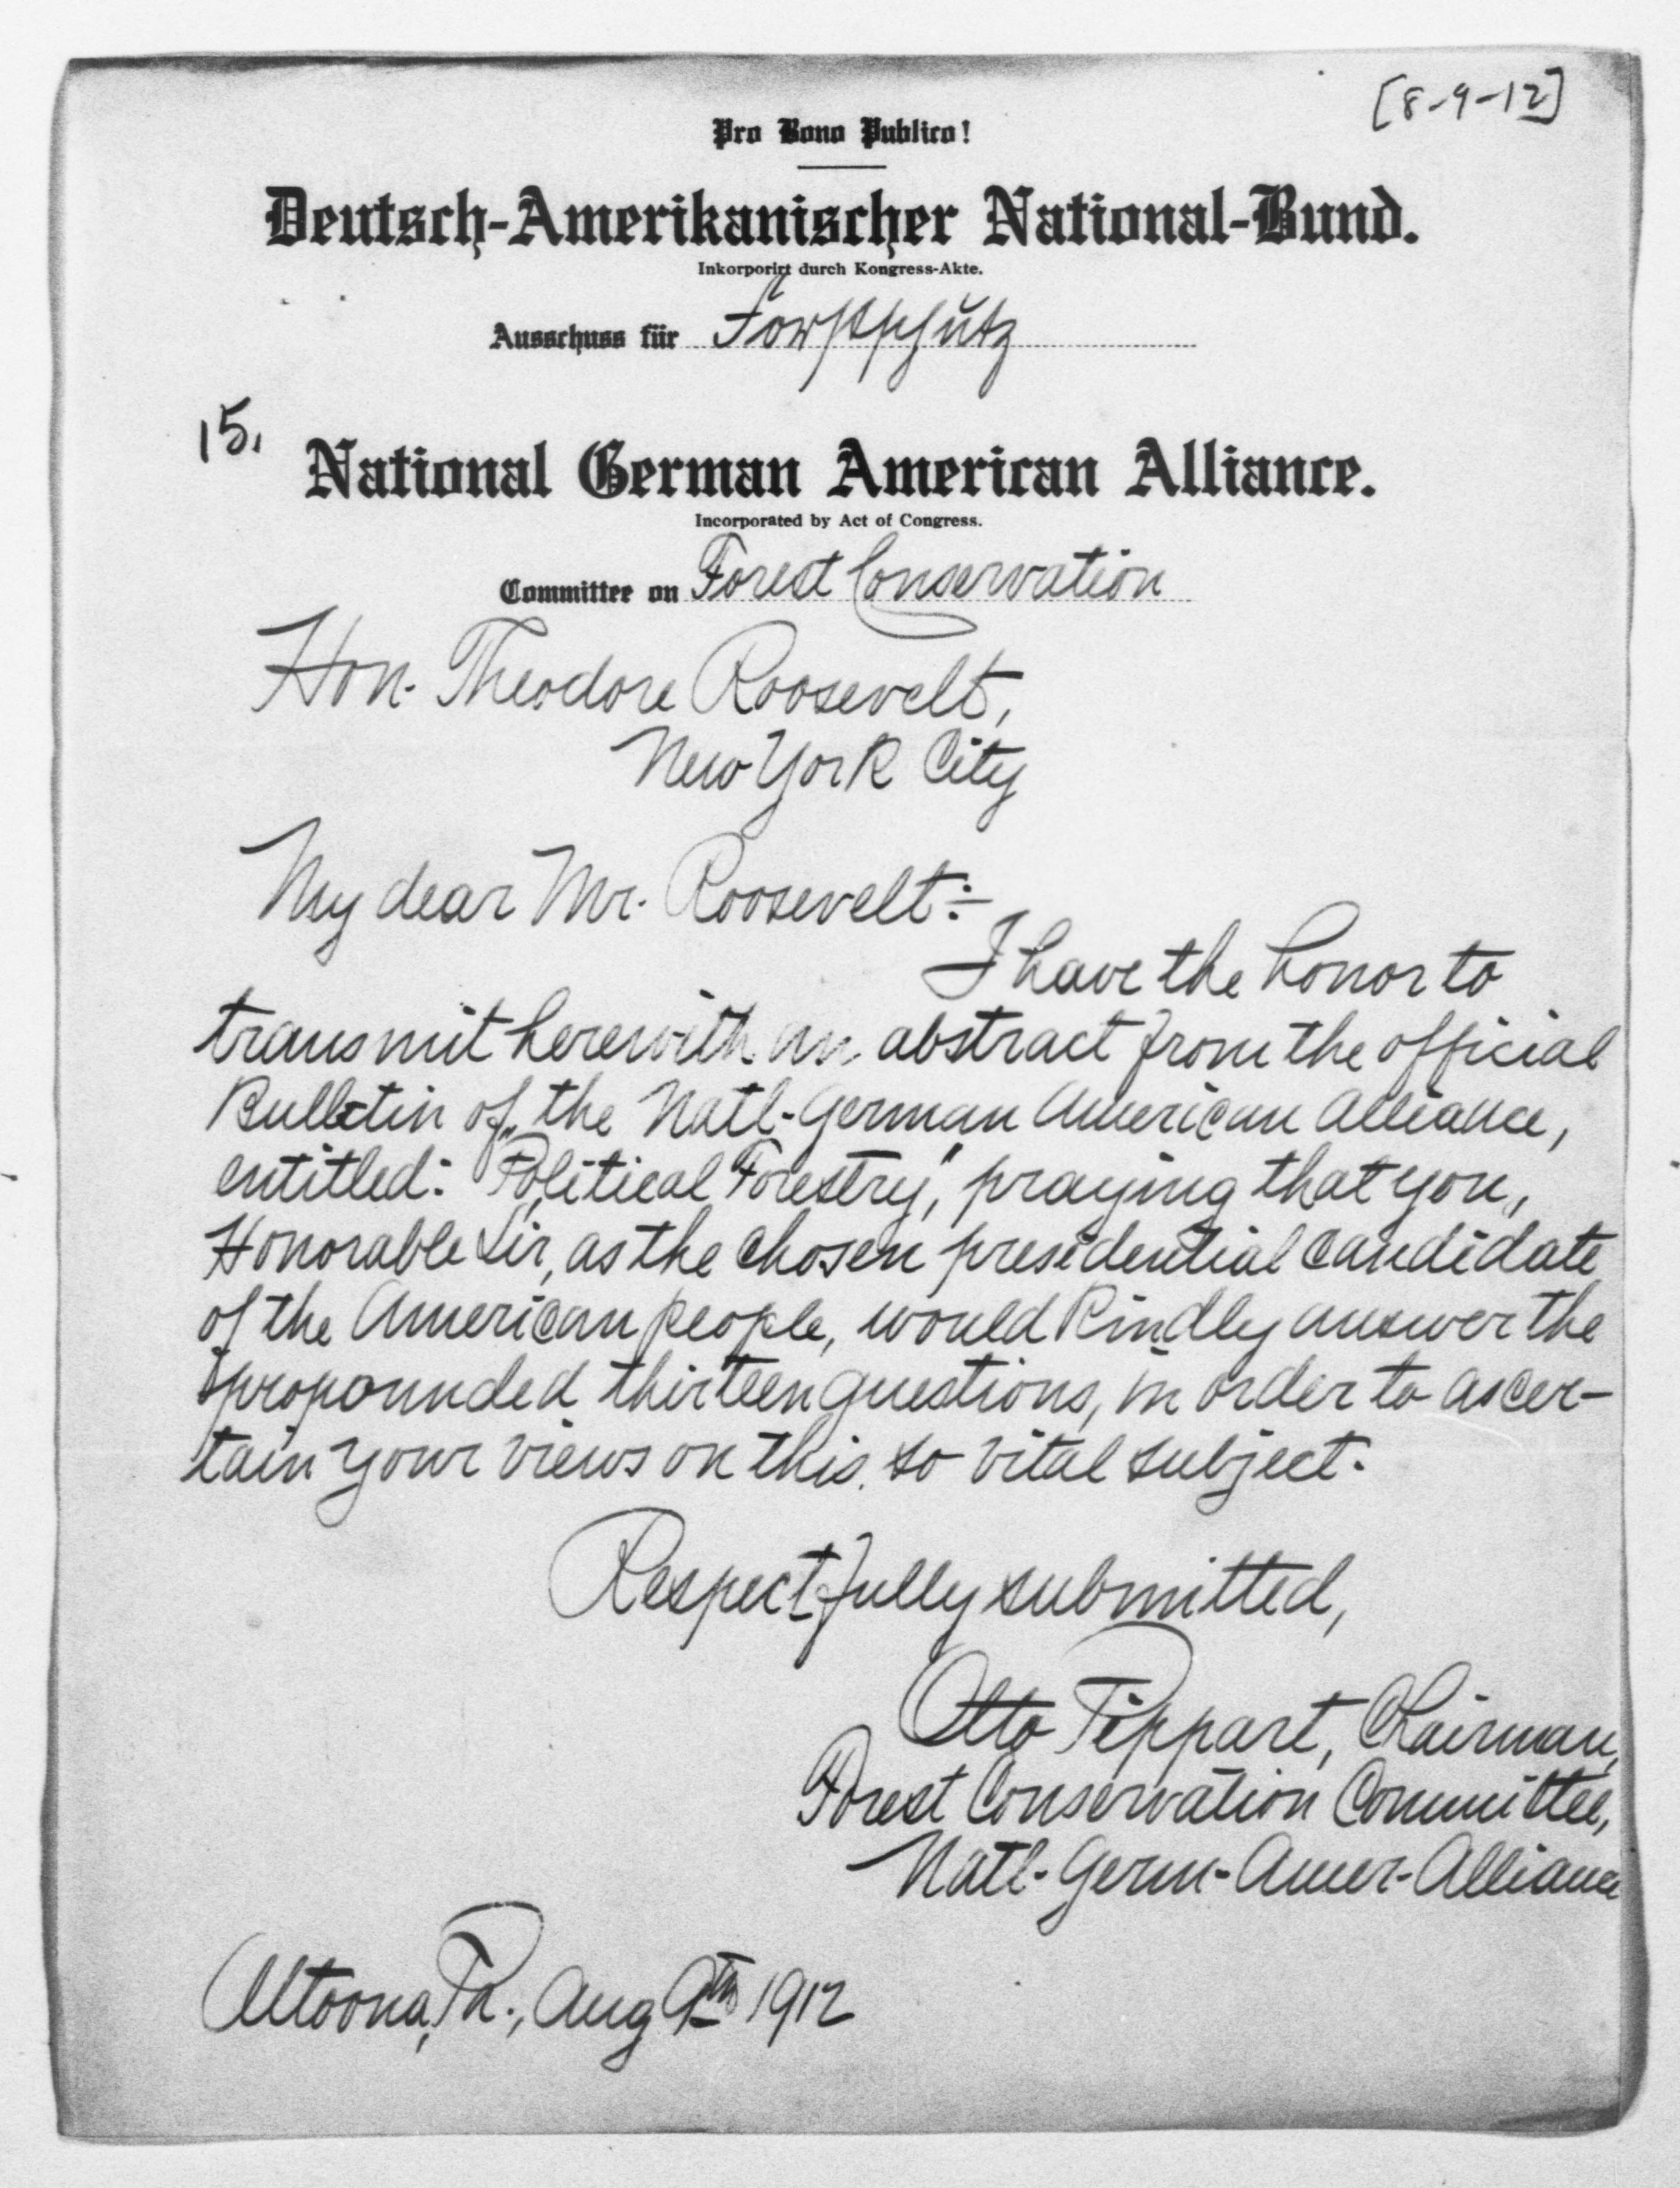 [8-9-12]
Pro Bono Publico!
Deutsch-Amerikanischer National-Bund.
Inkorporirt durch Kongress-Akte.
Ausschuss für Forstschutz
15.
National German American Alliance.
Incorporated by Act of Congress.
Committee on Forest Conservation
Hon. Theodore Roosevelt,
New York City
My dear Mr. Roosevelt:-
I have the honor to
transmit herewith an abstract from the official
Bulletin of the Natl. German American Alliance,
entitled: "Political Forestry," praying that you,
Honorable Sir, as the chosen presidential candidate
of the American people, would kindly answer the
propounded thirteen questions, in order to ascer-
tain your views on this so vital subject.
Respectfully submitted,
Otto Tippart, Chairman,
Forest Conservation Committee,
Natl. Germ-Amer-Alliance
Altoona, Pa., Aug 9th 1912